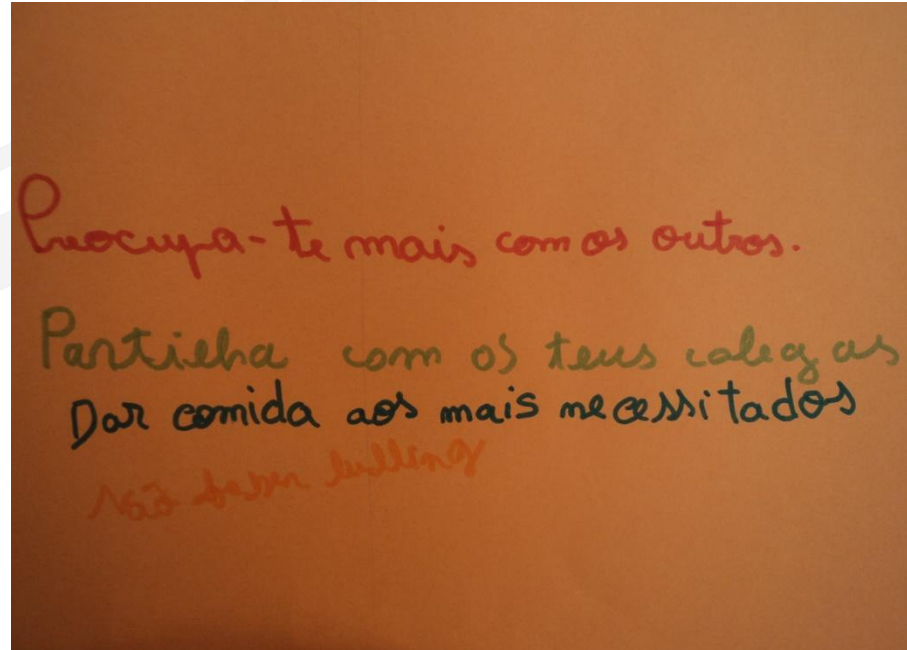 Preocupa-te mais com os outros.
Partilha com os teus colegas
Dar comida aos mais necessitados
Não fazer bulling